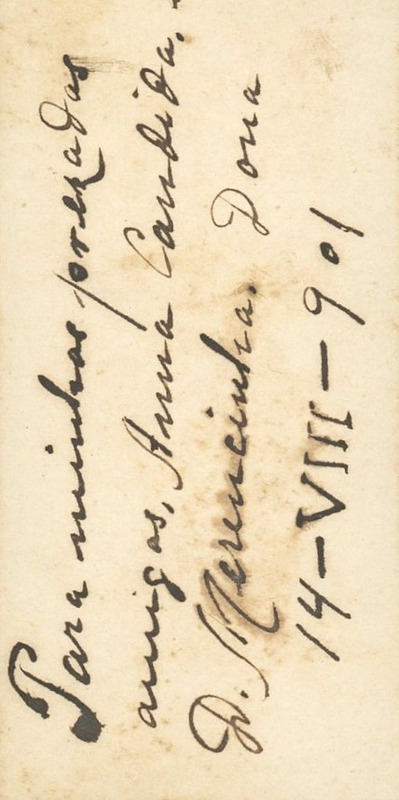 Para minhas prezadas
amigas, Anna Candida,
D. Merencinha. Dona
14-VIII-901